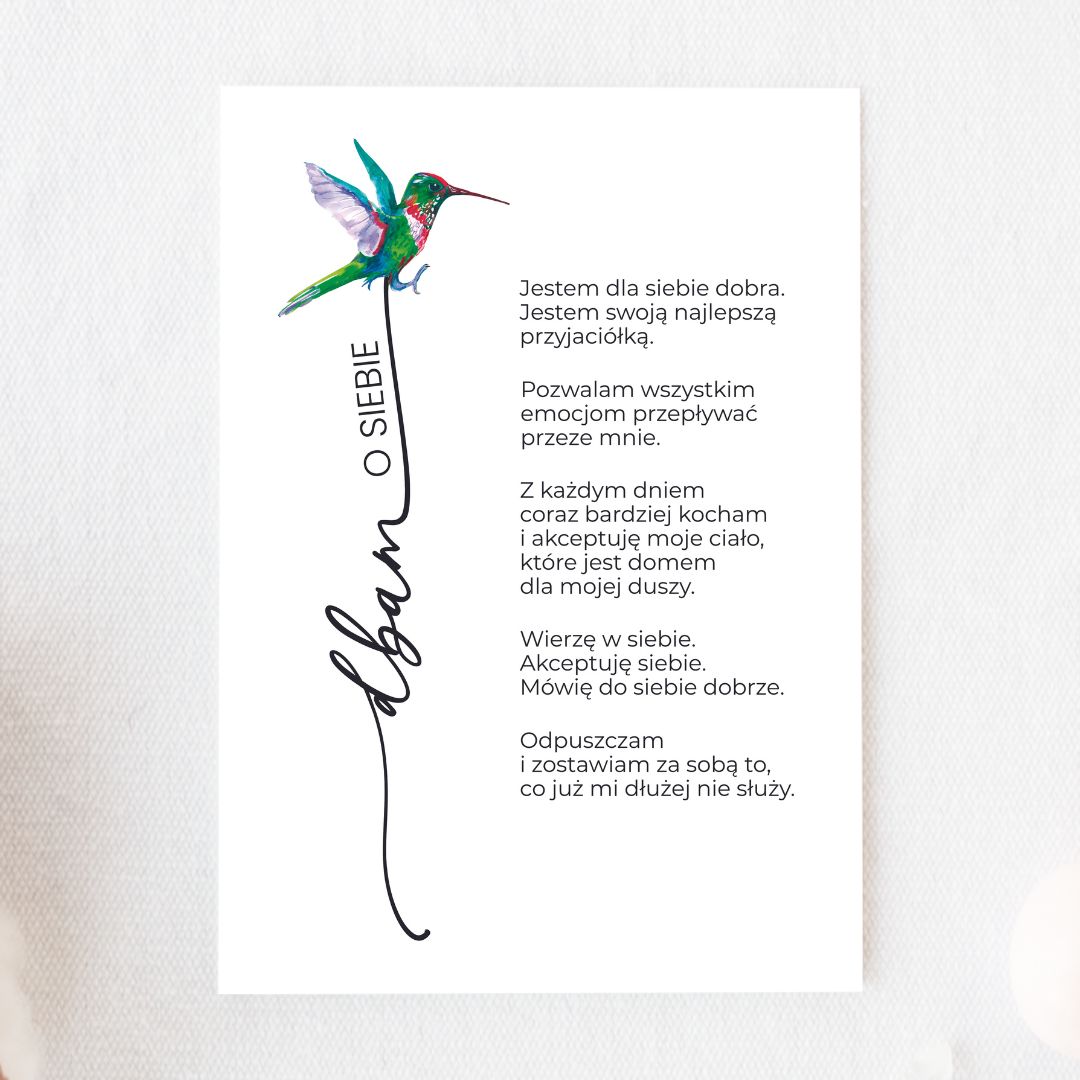 dbam O SIEBIE
Jestem dla siebie dobra.
Jestem swoją najlepszą
przyjaciółką.
Pozwalam wszystkim
emocjom przepływać
przeze mnie.
Z każdym dniem
coraz bardziej kocham
i akceptuję moje ciało,
które jest domem
dla mojej duszy.
Wierzę w siebie.
Akceptuję siebie.
Mówię do siebie dobrze.
Odpuszczam
i zostawiam za sobą to,
co już mi dłużej nie służy.